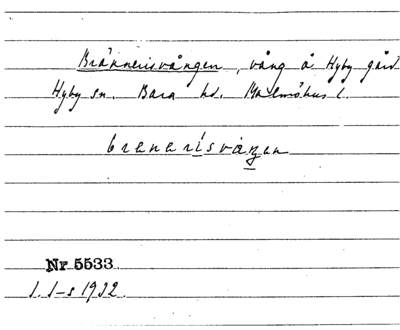 Brännerisvången, vång å Hyby gård
Hyby sn. Bara hd. Malmöhus l.
brenerisvaŋen
Nr 5533
1932